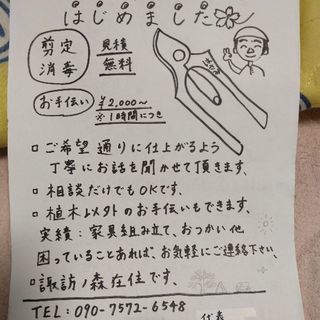 はじめました
剪定
消毒
見積
無料
お手伝い
¥2,000〜
※1時間につき
ご希望通りに仕上がるよう
丁寧にお話を聞かせて頂きます。
相談だけでもOKです。
植木以外のお手伝いもできます。
実績:家具組み立て、おつかい他
困っていることあれば、お気軽にご連絡下さい。
諏訪ノ森在住です。
TEL:090-7572-6548
代表